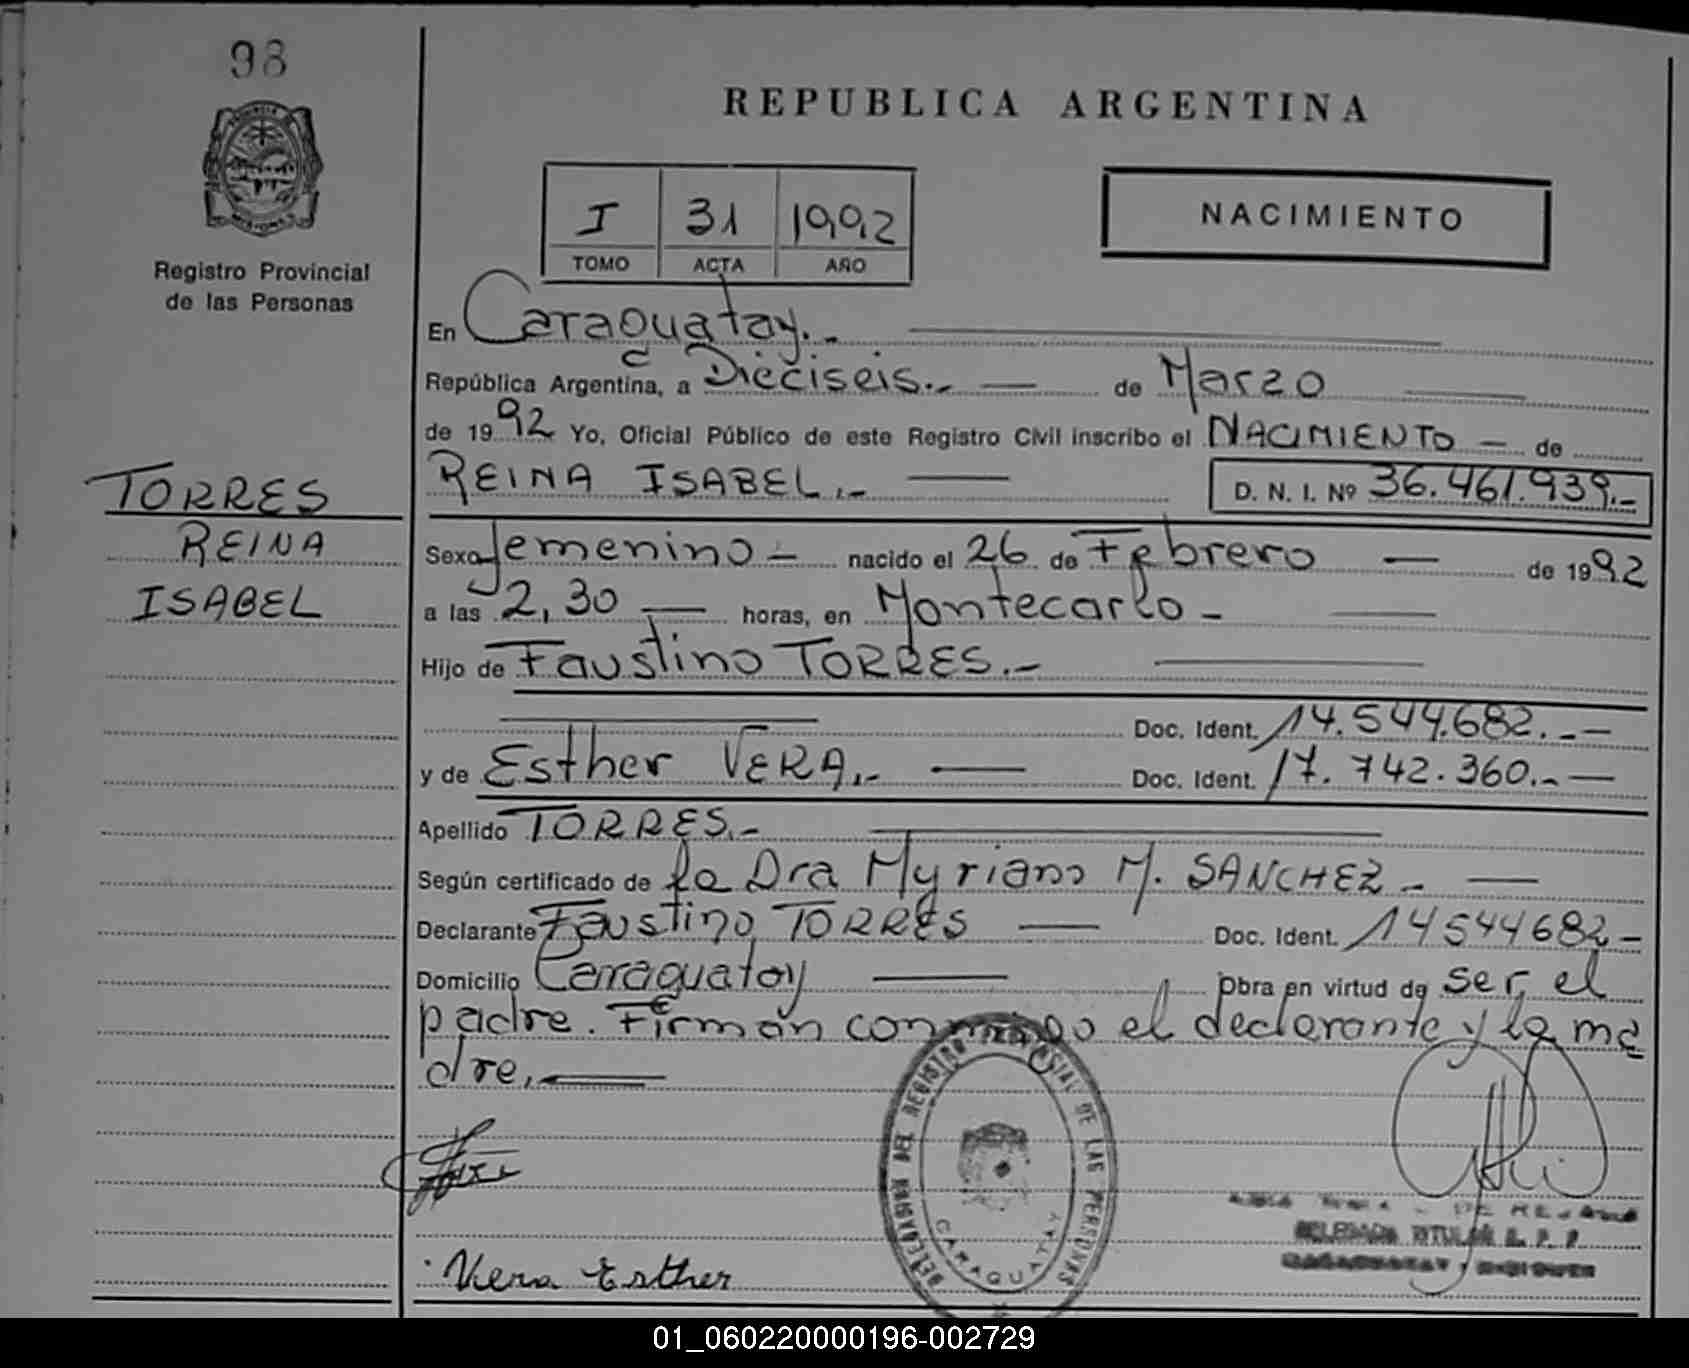 98
REPUBLICA ARGENTINA
I 31 1992
TOMO ACTA AÑO
NACIMIENTO
Registro Provincial
de las Personas
En Caraguatay.-
República Argentina, a Dieciseis.- de Marzo
de 1992 Yo, Oficial Público de este Registro Civil inscribo el NACIMIENTO - de
REINA ISABEL.- D. N. I. Nº 36.461.939.-
TORRES
REINA
ISABEL
Sexo femenino - nacido el 26 de Febrero - de 1992
a las 2,30 - horas, en Montecarlo -
Hijo de Faustino TORRES.-
Doc. Ident. 14.544.682.-
y de Esther VERA.- Doc. Ident. 17.742.360.-
Apellido TORRES.-
Según certificado de la Dra Myriam M. SANCHEZ -
Declarante Faustino TORRES Doc. Ident. 14544682-
Domicilio Carraguatay Obra en virtud de ser el
padre. Firman conmigo el declarante y la ma
dre.
Vera Esther
DELEGACION DEL REGISTRO PROVINCIAL DE LAS PERSONAS
CARAGUATAY
DELEGADA TITULAR R. P. P.
CARAGUATAY - MISIONES
01_060220000196-002729